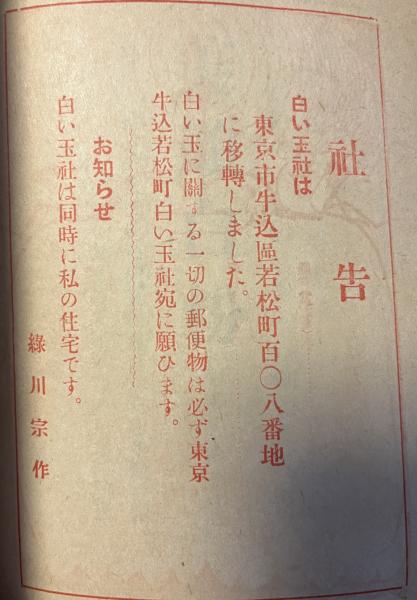 社告
白い玉社は
東京市牛込區若松町百〇八番地
に移轉しました。
白い玉に關する一切の郵便物は必ず東京
牛込若松町白い玉社宛に願ひます。
お知らせ
白い玉社は同時に私の住宅です。
綠川宗作